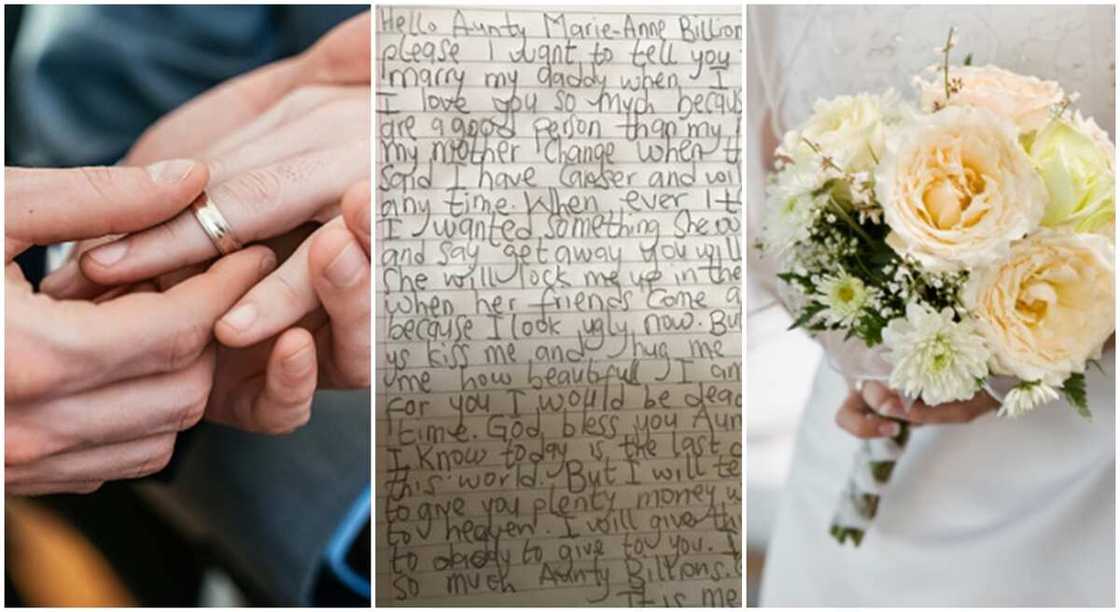 Hello Aunty Marie-Anne Billion
please I want to tell you
marry my daddy when I
I love you so much becaus
are a good person than my
my mother change when t
said I have Canser and will
any time. When ever I t
I wanted something She wo
and say get away you will
She will lock me up in the
when her friends Come a
because I look ugly now. Bu
us kiss me and hug me
me how beautifull I am
For you I would be dead
time. God bless you Aun
I know today is the last d
this world. But I will te
to give you plenty money w
to heaven. I will give thi
to daddy to give to you. I
so much Aunty Billions.
It is me